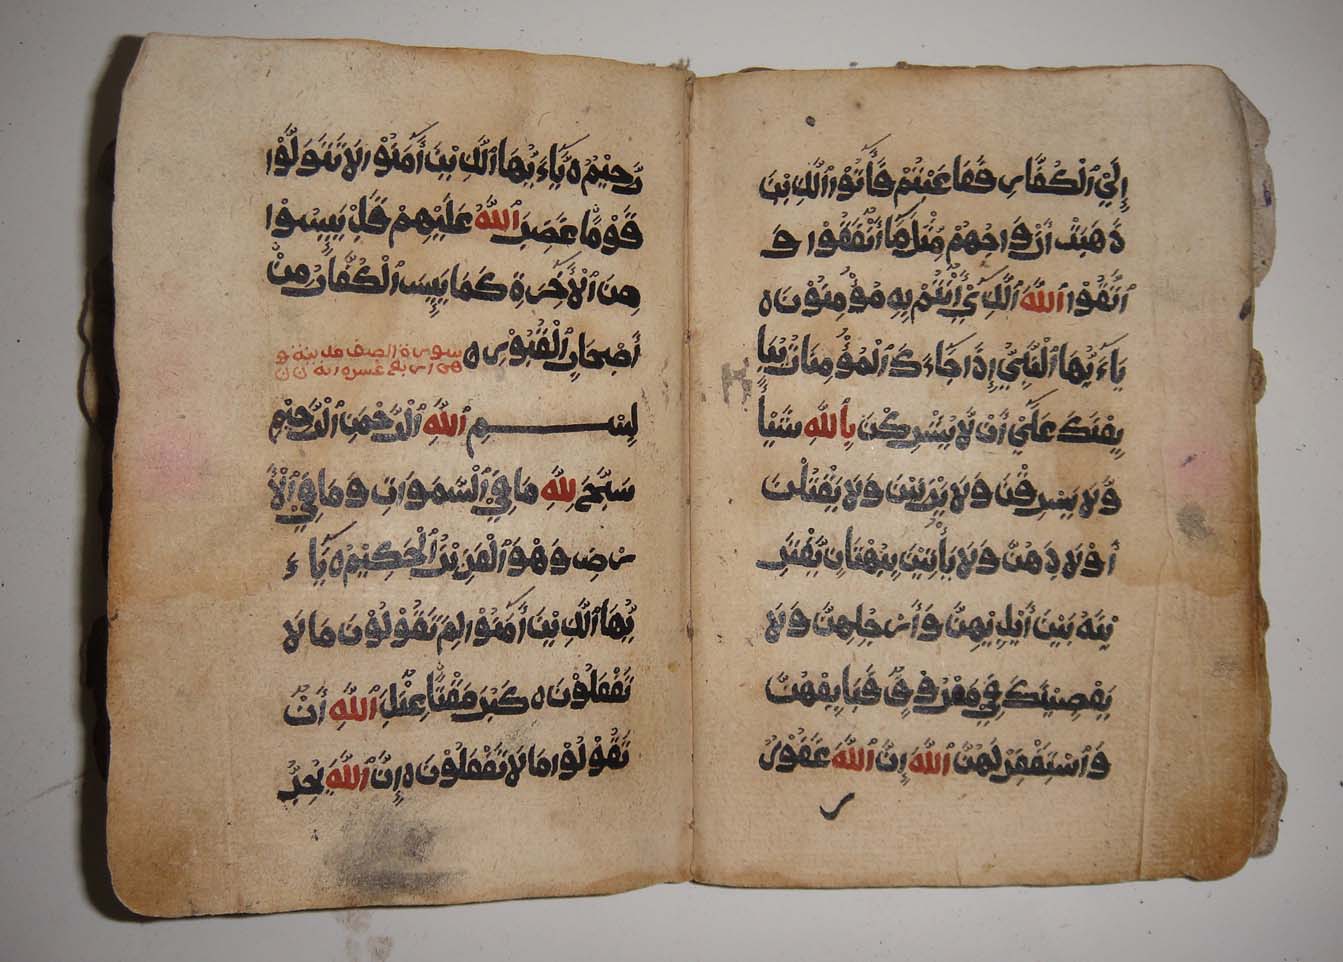 إِلَي ٱلْكُفَّارِ فَعَاقَبْتُمْ فَـَٔاتُوْا ٱلَّذِيْنَ
ذَهَبَتْ أَزْوَاجُهُمْ مِّثْلَ مَا أَنْفَقُوْا وَ
ٱتَّقُوْا ٱللَّهَ ٱلَّذِيْ أَنْتُمْ بِهِ مُؤْمِنُوْنَ ه
يَاءَيُّهَا ٱلْنَّبِيُّ إِذَا جَاءَكَ ٱلْمُؤْمِنَاتُ يُبَا
يِعْنَكَ عَلَيْ أَنْ لَّا يُشْرِكْنَ بِٱللَّهِ شَيْـًٔا
وَّلَا يَسْرِقْنَ وَلَا يَزْنِيْنَ وَلَا يَقْتُلْنَ
أَوْلَادَهُنَّ وَلَا يَأْتِيْنَ بِبُهْتَانٍ يَّفْتَرِ
يْنَهُ بَيْنَ أَيْدِيْهِنَّ وَأَرْجُلِهِنَّ وَلَا
يَعْصِيْنَكَ فِيْ مَعْرُوْفٍ فَبَايِعْهُنَّ
وَٱسْتَغْفِرْ لَهُنَّ ٱللَّهَ إِنَّ ٱللَّهَ غَفُوْرٌ
رَّحِيْمٌ ه يَّاءَيُّهَا ٱلَّذِيْنَ أَمَنُوْا لَا تَتَوَلَّوْا
قَوْمًا غَضِبَ ٱللَّهُ عَلَيْهِمْ قَدْ يَيِٕسُوْا
مِنَ ٱلْأَخِرَةِ كَمَا يَيِٕسَ ٱلْكُفَّارُ مِنْ
أَصْحَابِ ٱلْقُبُوْرِ ه سورة الصف مدينة و
هى اربع عشرة اية
بِسْمِ ٱللَّهِ ٱلْرَّحْمَنِ ٱلْرَّحِيْمِ
سَبَّحَ لِلَّهِ مَا فِيْ ٱلْسَّمَوَاتِ وَمَا فِيْ ٱلْأَ
رْضِ وَهْوَ ٱلْعَزِيْزُ ٱلْحَكِيْمُ ه يَاءَ
يُّهَا ٱلَّذِيْنَ أَمَنُوْا لِمَ تَقُوْلُوْنَ مَا لَا
تَفْعَلُوْنَ ه كَبُرَ مَقْتًا عِنْدَ ٱللَّهِ أَنْ
تَقُوْلُوْا مَا لَا تَفْعَلُوْنَ ه إِنَّ ٱللَّهَ يُحِبُّ